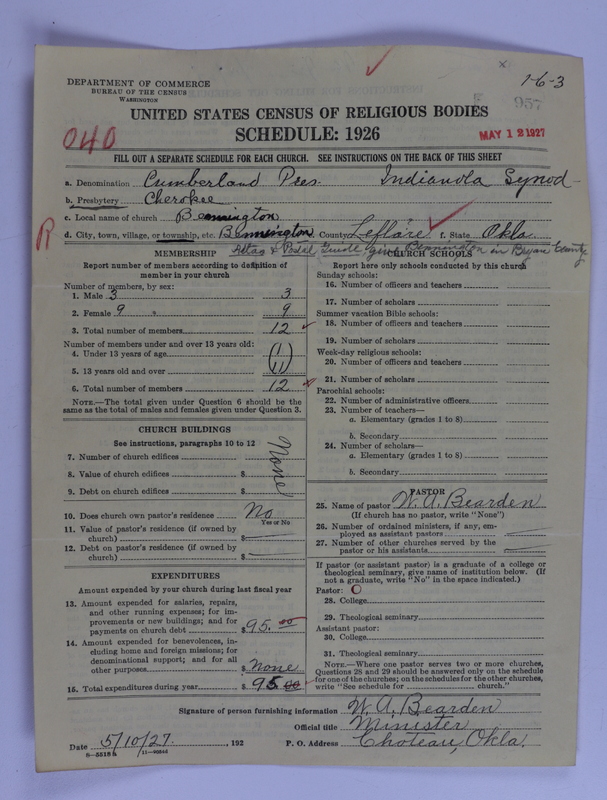 1-6-3
DEPARTMENT OF COMMERCE
BUREAU OF THE CENSUS
WASHINGTON
957
UNITED STATES CENSUS OF RELIGIOUS BODIES
SCHEDULE: 1926
040
MAY 12 1927
FILL OUT A SEPARATE SCHEDULE FOR EACH CHURCH. SEE INSTRUCTIONS ON THE BACK OF THIS SHEET
a. Denomination Cumberland Pres. Indianola Synod
b. Presbytery Cherokee
c. Local name of church Bennington
R
d. City, town, village, or township, etc. Bennington County Leflare f. State Okla.
Atlas & Postal Guide give Bennington in Bryan County
MEMBERSHIP
Report number of members according to definition of
member in your church
Number of members, by sex:
1. Male 3 3
2. Female 9 9
3. Total number of members 12
Number of members under and over 13 years old:
4. Under 13 years of age (1
5. 13 years old and over 11)
6. Total number of members 12
NOTE.—The total given under Question 6 should be
same as the total of males and females given under Question 3.
CHURCH BUILDINGS
See instructions, paragraphs 10 to 12
None
7. Number of church edifices
8. Value of church edifices $
9. Debt on church edifices $
10. Does church own pastor's residence No
Yes or No
11. Value of pastor's residence (if owned by
church) $
12. Debt on pastor's residence (if owned by
church) $
EXPENDITURES
Amount expended by your church during last fiscal year
13. Amount expended for salaries, repairs,
and other running expenses; for im-
provements or new buildings; and for
payments on church debt $95.00
14. Amount expended for benevolences, in-
cluding home and foreign missions; for
denominational support; and for all
other purposes $ None
15. Total expenditures during year $ 95.00
CHURCH SCHOOLS
Report here only schools conducted by this church
Sunday schools:
16. Number of officers and teachers
17. Number of scholars
Summer vacation Bible schools:
18. Number of officers and teachers
19. Number of scholars
Week-day religious schools:
20. Number of officers and teachers
21. Number of scholars
Parochial schools:
22. Number of administrative officers
23. Number of teachers—
a. Elementary (grades 1 to 8)
b. Secondary
24. Number of scholars—
a. Elementary (grades 1 to 8)
b. Secondary
PASTOR
25. Name of pastor W. A. Bearden
(If church has no pastor, write "None")
26. Number of ordained ministers, if any, em-
ployed as assistant pastors
27. Number of other churches served by the
pastor or his assistants
If pastor (or assistant pastor) is a graduate of a college or
theological seminary, give name of institution below. (If
not a graduate, write "No" in the space indicated.)
Pastor: O
28. College
29. Theological seminary
Assistant pastor:
30. College
31. Theological seminary
NOTE.—Where one pastor serves two or more churches,
Questions 28 and 29 should be answered only on the schedule
for one of the churches; on the schedules for the other churches,
write "See schedule for church."
Signature of person furnishing information W. A. Bearden
Official title Minister
Date 5/10/27., 192 P. O. Address Choteau, Okla.